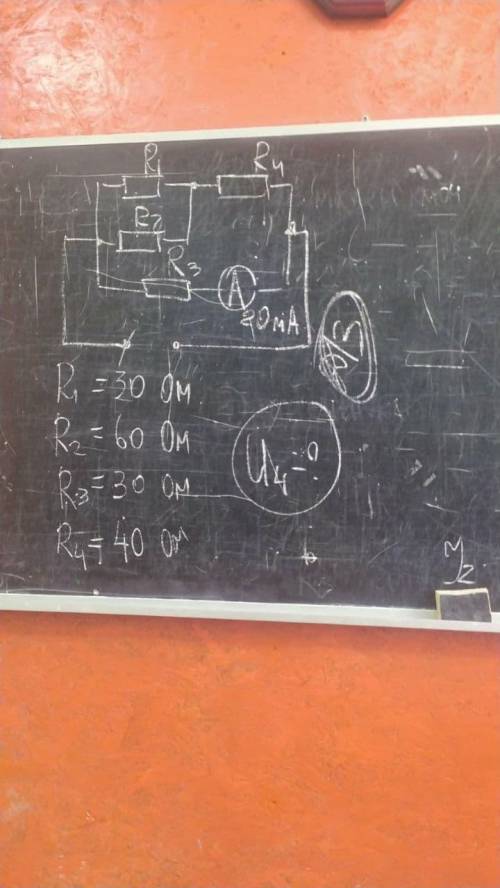 R₁ R₄
R₂
R₃ A
80мА
Д/З
R₁ = 30 Ом
R₂ = 60 Ом
R₃ = 30 Ом
R₄ = 40 Ом
U₄ = ?